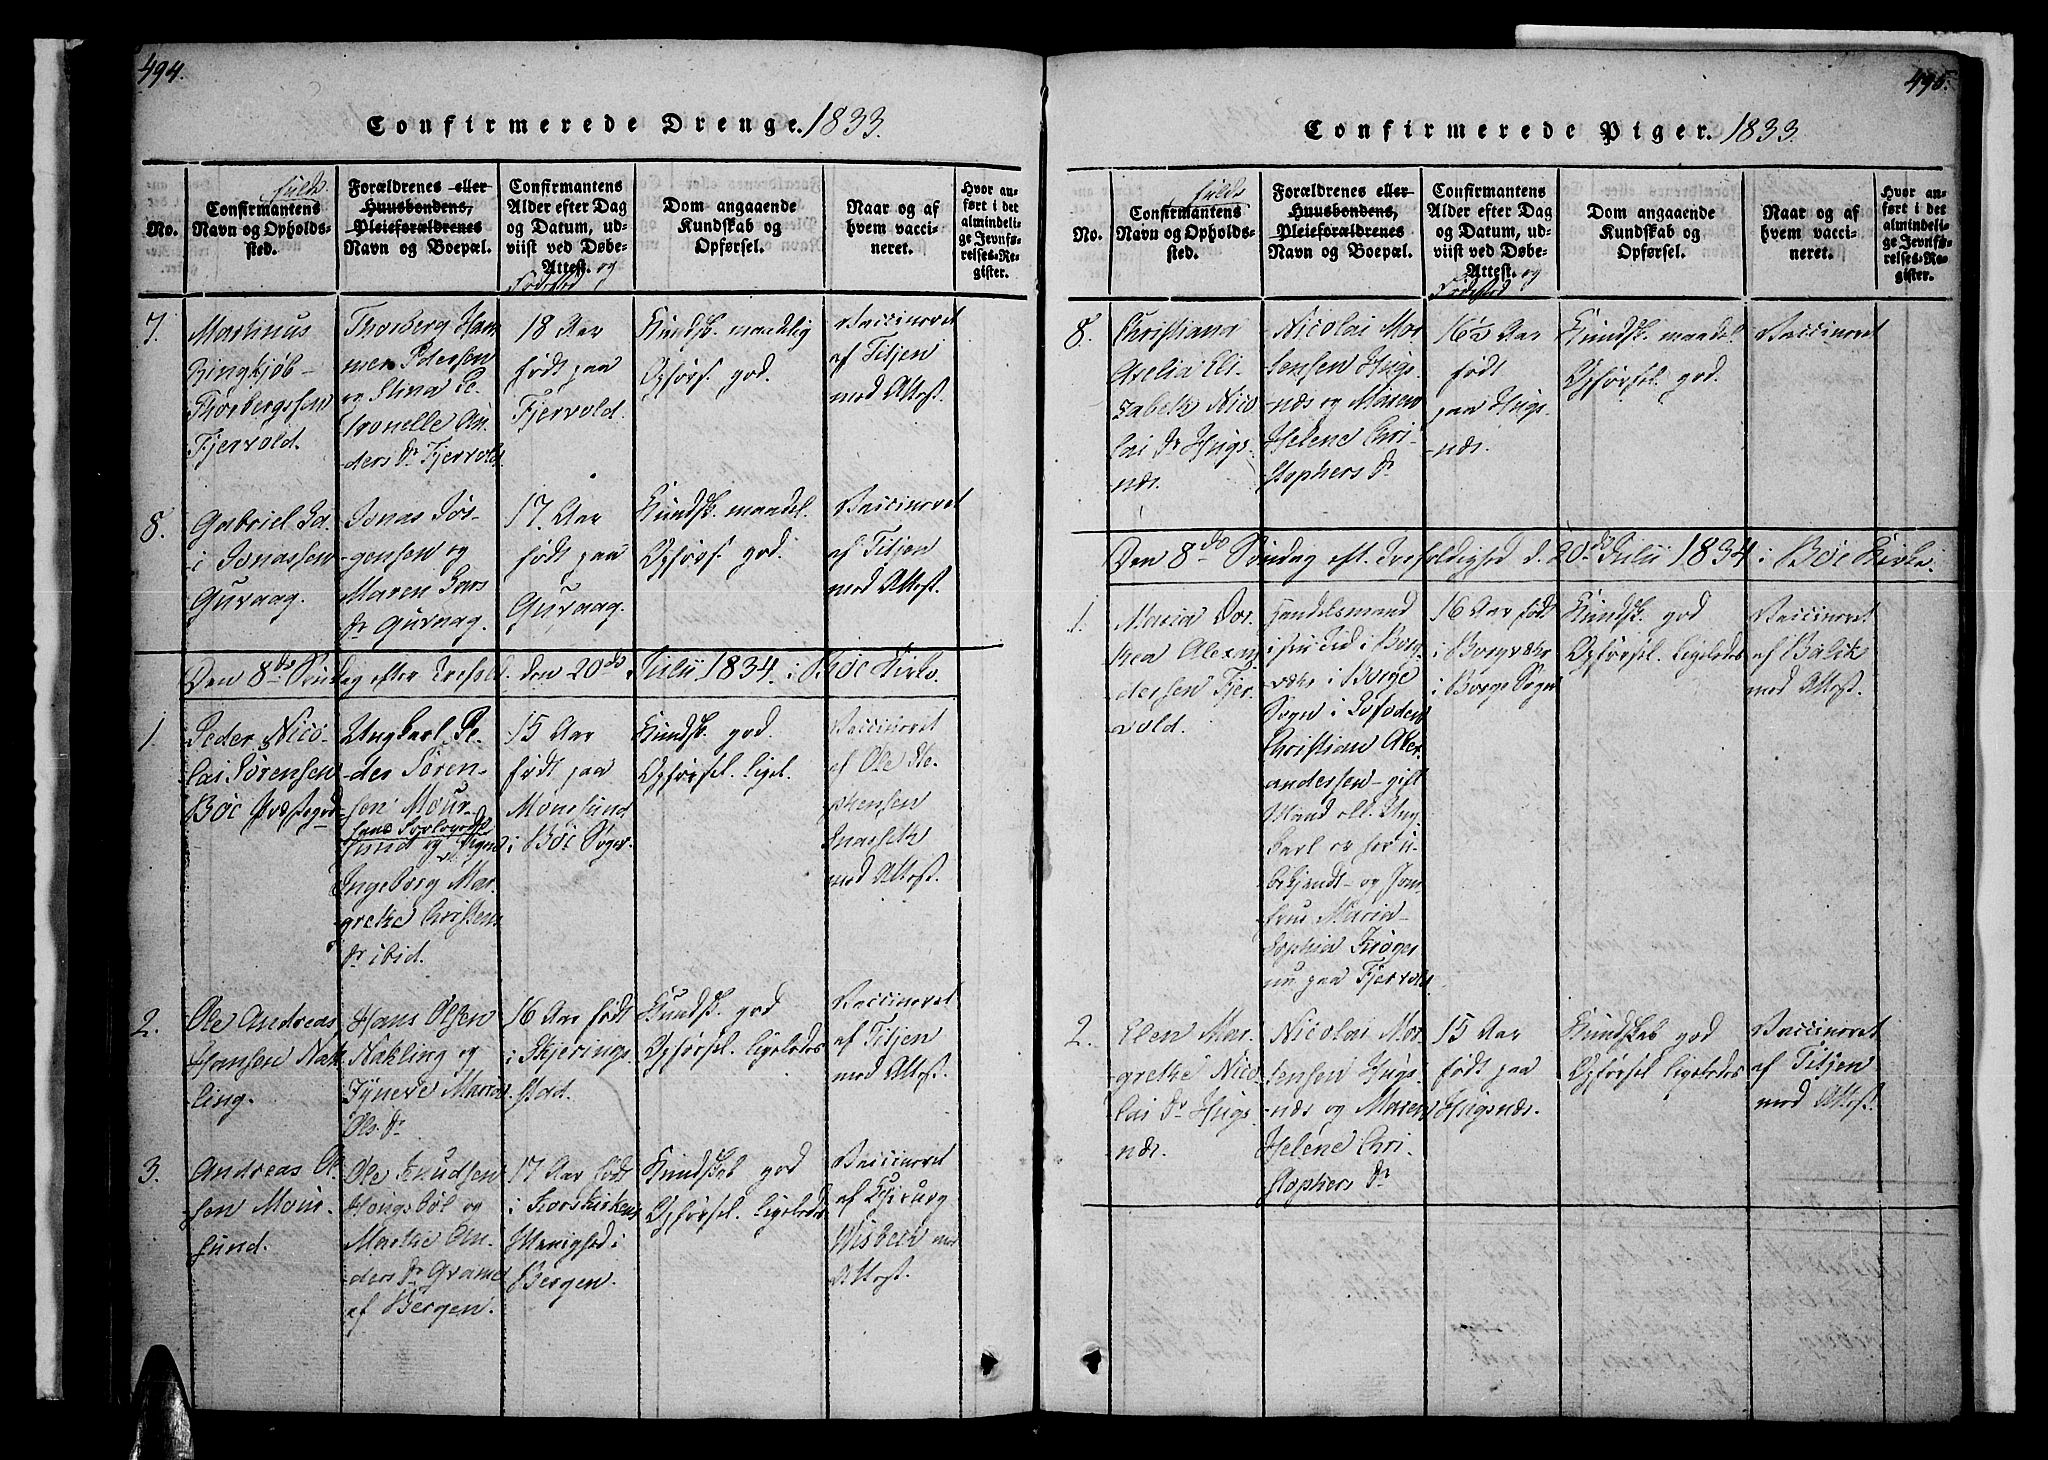 494.
Confirmerede Drenge. 1833.
No.
fulde
Confirmantens
Navn og Opholds-
sted.
Forældrenes eller
Huusbondens,
Pleieforældrenes
Navn og Boepæl.
Confirmantens
Alder efter Dag
og Datum, ud-
viist ved Døbe-
Attest. og
Fødested
Dom angaaende
Kundskab og
Opførsel.
Naar og af
hvem vacci-
neret.
Hvor an-
ført i det
almindeli-
ge Jevnfø-
relses-Re-
gister.
7.
Martinus
Ringkjøb
Thorbergssen
Fjervold.
Thorberg Ham-
mer Petersen
og Stina Pe-
tronelle An-
ders Dr Fjervold
18 Aar
født paa
Fjervold.
Kundsk. maadelig
Opførs. god.
Vaccineret
af Titjen
med Attest.
8.
Gabriel
i Jonassen
Guraag.
Jonas Jør-
gensen og
Maren Lars
Dr Guraag.
17. Aar
født paa
Guraag.
Kundsk. maadel.
Opførs. god.
Vaccineret
af Titjen
med Attest.
Den 8de Søndag efter Trefold. den 20de Julii 1834. i Bøe Kirke.
1.
Peder Nico-
lai Sørensen
Bøe Præstegrd
Ungkarl Pe-
der Søren-
sen Møur-
sund og Pigen
Ingeborg Mar-
grethe Christens
Dr ibid.
15 Aar
født paa
Mønesund
i Bøe Sogn.
Kundsk. god.
Opførsel. ligel.
Vaccineret
af Ole Ste-
phensen
med Attest.
2.
Ole Andreas
Hansen Nak-
ling.
Hans Olsen
Nakling og
Synere Maria
Ols. Dr
16 Aar født
i Skjerings-
stad.
Kundsk. god
Opførsel. ligeledes
Vaccineret
af Titjen
med Attest.
3.
Andreas Ol-
sen Møur-
sund.
Ole Knudsen
Hougsbøl og
Marthe An-
ders Dr Gramd
af Bergen.
17 Aar født
i Korskirkens
Menighed i
Bergen.
Kundskab god
Opførsel. ligeledes
Vaccineret
af Chirurg
Wisbech med
Attest.
495.
Confirmerede Piger. 1833.
No.
fulde
Confirmantens
Navn og Opholds-
sted.
Forældrenes eller
Huusbondens,
Pleieforældrenes
Navn og Boepæl.
Confirmantens
Alder efter Dag
og Datum, ud-
viist ved Døbe-
Attest. og
Fødested
Dom angaaende
Kundskab og
Opførsel.
Naar og af
hvem vacci-
neret.
Hvor an-
ført i det
almindeli-
ge Jevnfø-
relses-Re-
gister.
8.
Christiana
Axelia Eli-
zabeth Nico-
lai Dr Hugs-
næs.
Nicolai Mor-
tensen Hugs-
næs og Maren
Helene Chri-
stophers Dr
16½ Aar
født
paa Hugs-
næs.
Kundsk. maadel.
Opførsel. god.
Vaccineret
Den 8de Søndag eft. Trefoldighed d. 20de Julii 1834 i Bøe Kirke.
1.
Maria Dor-
thea Alexan-
dersen Fjer-
vold.
Handelsmand
i sin Tid i Borg-
vær i Borge
Sogn i Lofoden
Christian Alex-
andersen gift
Mand ell. Ung-
karl er for u-
bekjendt og Jom-
frue Maria
Sophia Krøger
nu paa Fjervold
16 Aar født
i Borgvær
i Borge Sogn
Kundsk. god
Opførsel. ligeledes
Vaccineret
af Bølck
med Attest.
2.
Elen Mar-
grethe Nico-
lai Dr Hugs-
næs.
Nicolai Mor-
tensen Hugs-
næs og Maren
Helene Chri-
stophers Dr
15 Aar
født paa
Hugsnæs.
Kundskab god
Opførsel ligeledes
Vaccineret
af Titjen
med Attest.